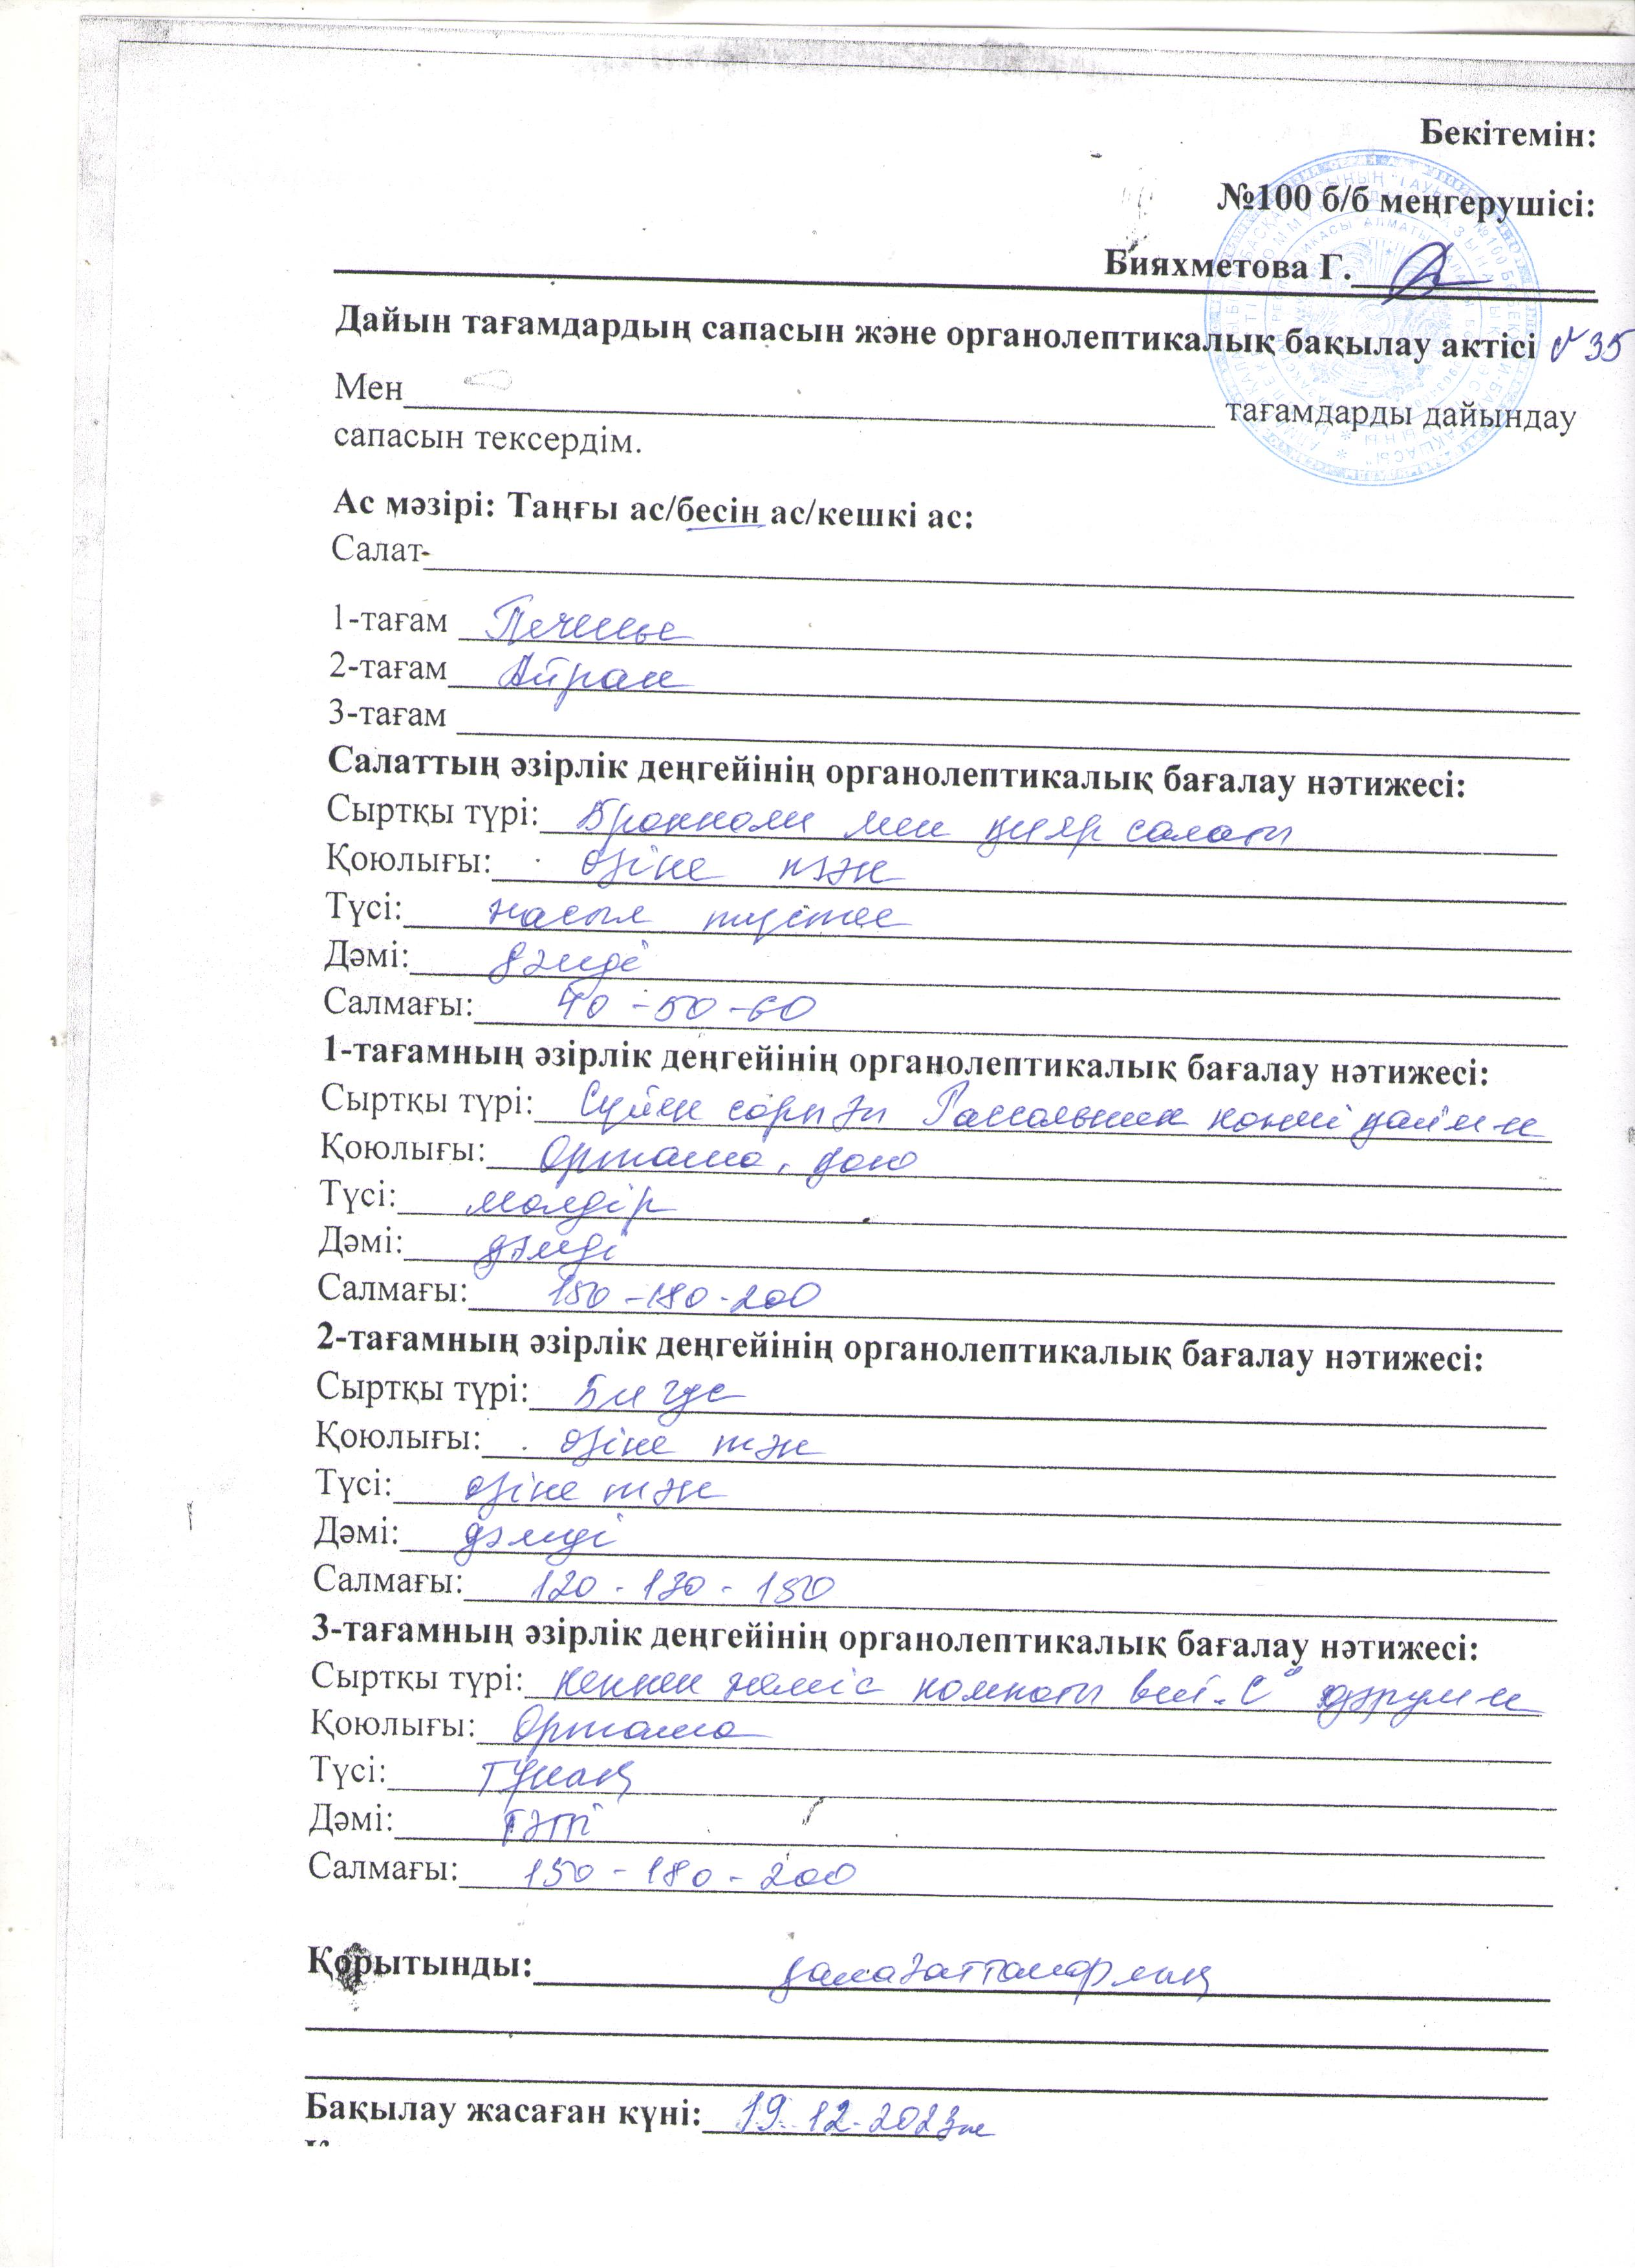 Бекітемін:
№100 б/б меңгерушісі:
Бияхметова Г.
Дайын тағамдардың сапасын және органолептикалық бақылау актісі №35
Мен тағамдарды дайындау
сапасын тексердім.
Ас мәзірі: Таңғы ас/бесін ас/кешкі ас:
Салат-
1-тағам Печенье
2-тағам Айран
3-тағам
Салаттың әзірлік деңгейінің органолептикалық бағалау нәтижесі:
Сыртқы түрі: Брокколи мен қияр салаты
Қоюлығы: өзіне тән
Түсі: жасыл түстес
Дәмі: дәмді
Салмағы: 40-50-60
1-тағамның әзірлік деңгейінің органолептикалық бағалау нәтижесі:
Сыртқы түрі: Сүйек сорпа
Қоюлығы: Орташа, қою
Түсі: мөлдір
Дәмі: дәмді
Салмағы: 150-180-200
2-тағамның әзірлік деңгейінің органолептикалық бағалау нәтижесі:
Сыртқы түрі: Бигус
Қоюлығы: өзіне тән
Түсі: өзіне тән
Дәмі: дәмді
Салмағы: 120-130-150
3-тағамның әзірлік деңгейінің органолептикалық бағалау нәтижесі:
Сыртқы түрі: кепкен жеміс компоты вит. "С" дәрум-н
Қоюлығы: Орташа
Түсі: Тұнық
Дәмі: Тәтті
Салмағы: 150-180-200
Қорытынды: қанағаттанарлық
Бақылау жасаған күні: 19.12.2023ж